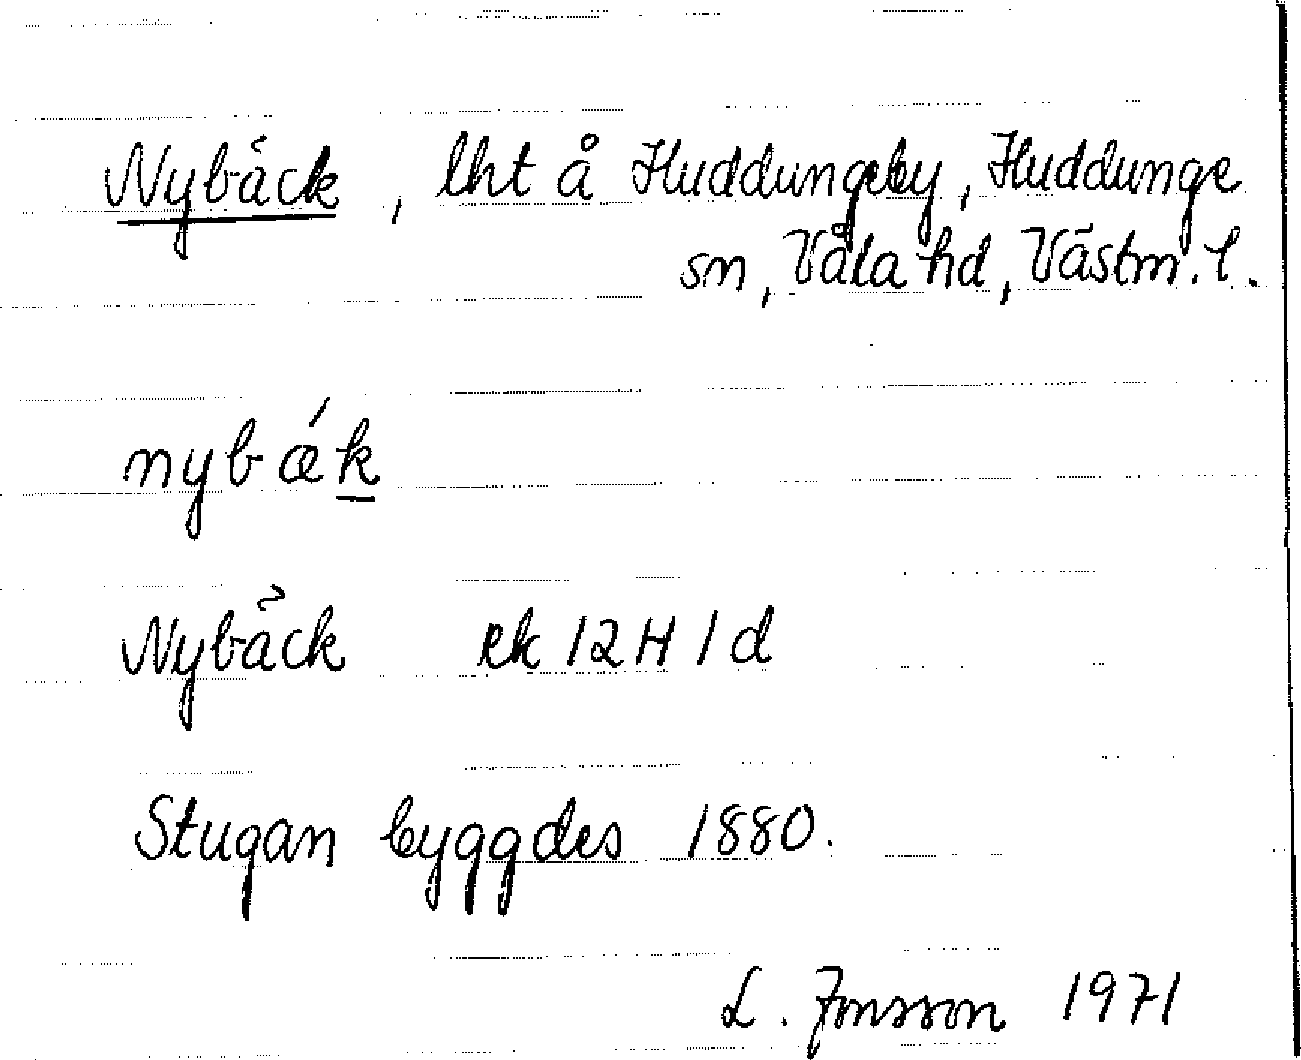 Nybäck, lht å Huddungeby, Huddunge
sn, Våla hd, Västm. l.
nybǽk
Nybäck rk 12 H 1 d
Stugan byggdes 1880.
L. Jonsson 1971